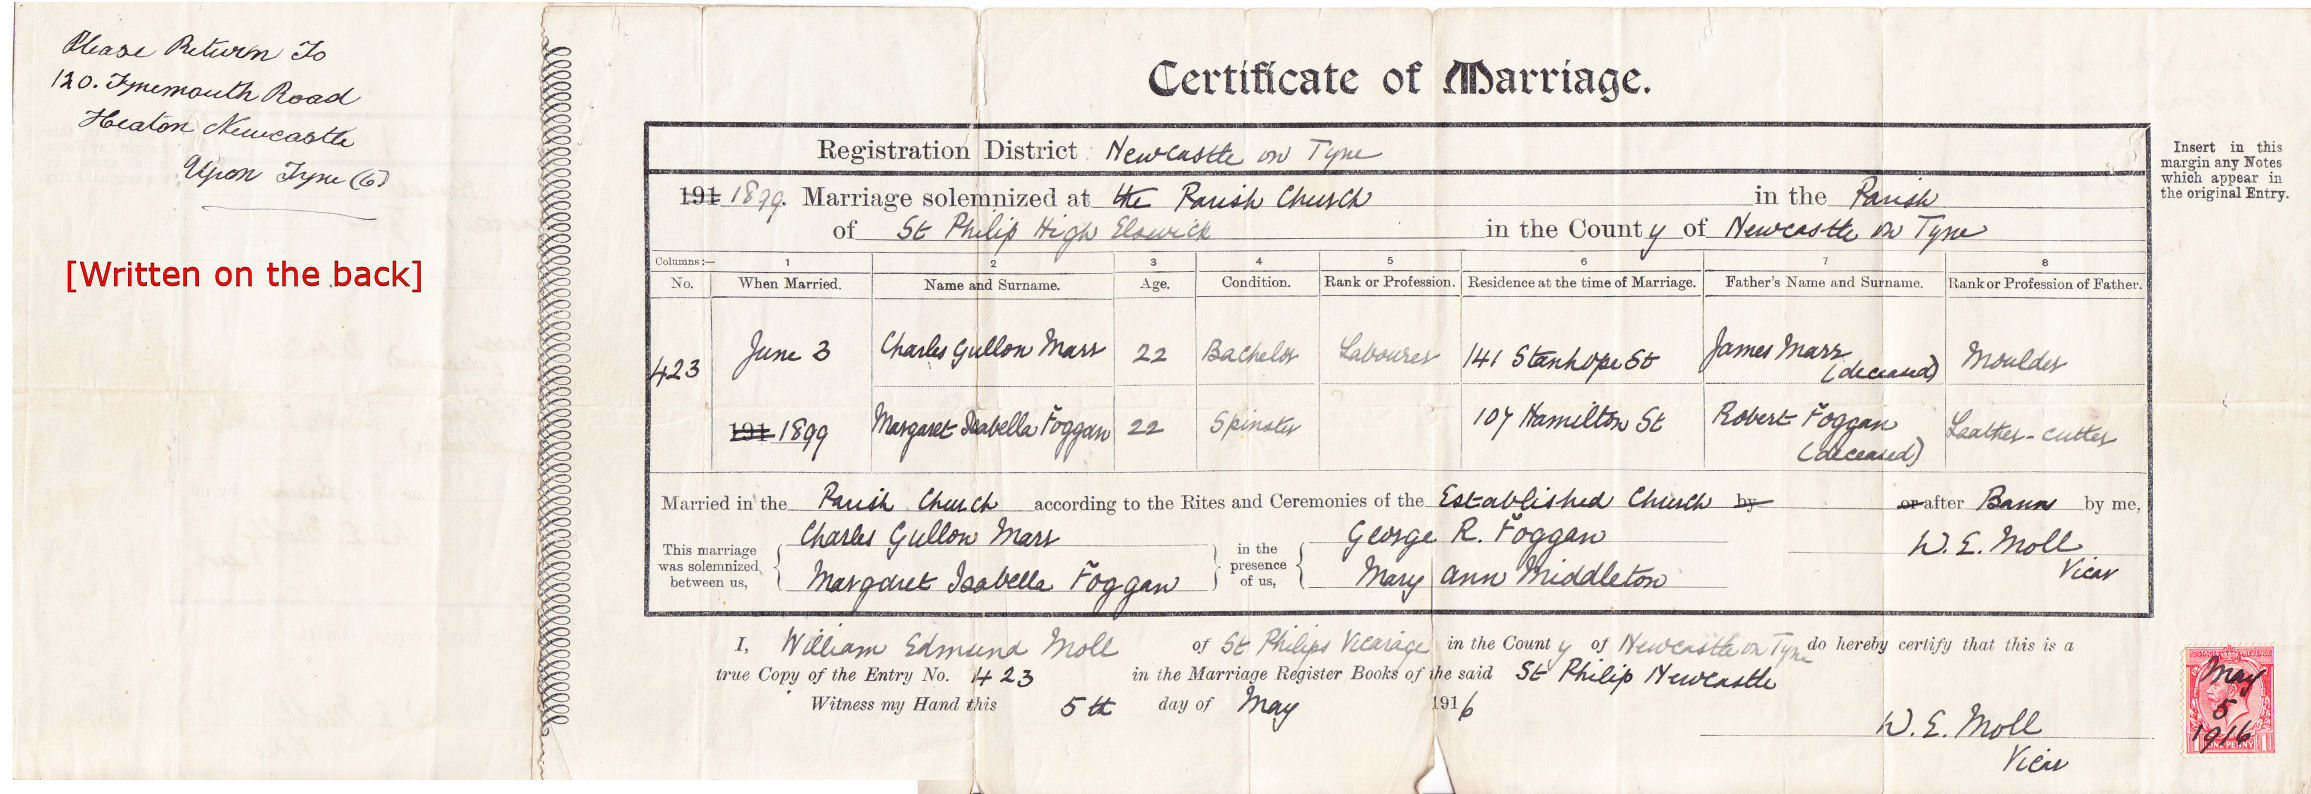 Please Return To
120. Tynemouth Road
Heaton Newcastle
Upon Tyne (6)
[Written on the back]
Certificate of Marriage.
Registration District Newcastle on Tyne
191 1899. Marriage solemnized at the Parish Church in the Parish
of St Philip High Elswick in the County of Newcastle on Tyne
Columns:— 1 2 3 4 5 6 7 8
No. When Married. Name and Surname. Age. Condition. Rank or Profession. Residence at the time of Marriage. Father's Name and Surname. Rank or Profession of Father.
423 June 3 Charles Gullon Marr 22 Bachelor Labourer 141 Stanhope St James Marr (deceased) Moulder
191 1899 Margaret Isabella Foggan 22 Spinster 107 Hamilton St Robert Foggan (deceased) Leather-cutter
Married in the Parish Church according to the Rites and Ceremonies of the Established Church by or after Banns by me,
This marriage was solemnized between us, Charles Gullon Marr Margaret Isabella Foggan in the presence of us, George R. Foggan Mary Ann Middleton W. E. Moll Vicar
I, William Edmund Moll of St Philips Vicarage in the County of Newcastle on Tyne do hereby certify that this is a
true Copy of the Entry No. 423 in the Marriage Register Books of the said St Philip Newcastle
Witness my Hand this 5th day of May 1916
W. E. Moll
Vicar
Insert in this
margin any Notes
which appear in
the original Entry.
May
5
1916
ONE PENNY